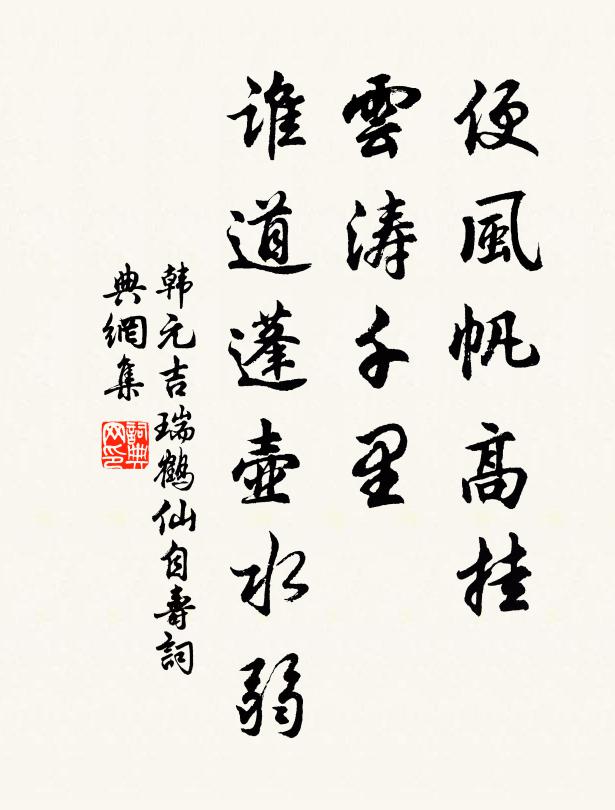 便風帆高挂
雲涛千里
谁道蓬壺水弱
韩元吉瑞鶴仙自壽詞
典網集
詞典网印